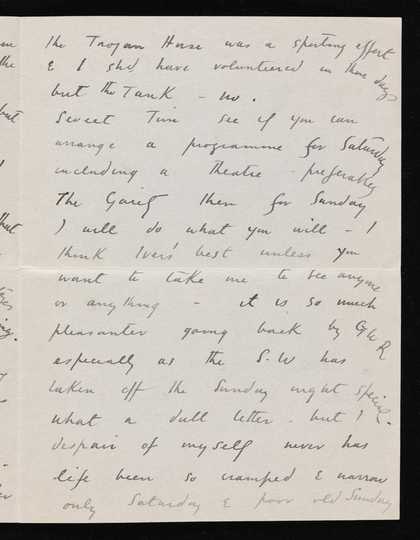 the Trojan Horse was a sporting effort
& I shd have volunteered in those days
but the Tank – no.
Sweet Tim see if you can
arrange a programme for Saturday
including a Theatre – preferably
The Gaiety then for Sunday
I will do what you will – I
think Ivers' best unless you
want to take me to see anyone
or anything – it is so much
pleasanter going back by GWR
especially as the S.W has
taken off the Sunday night special.
what a dull letter. but I
despair of myself never has
life been so cramped & narrow
only Saturday & poor old Sunday